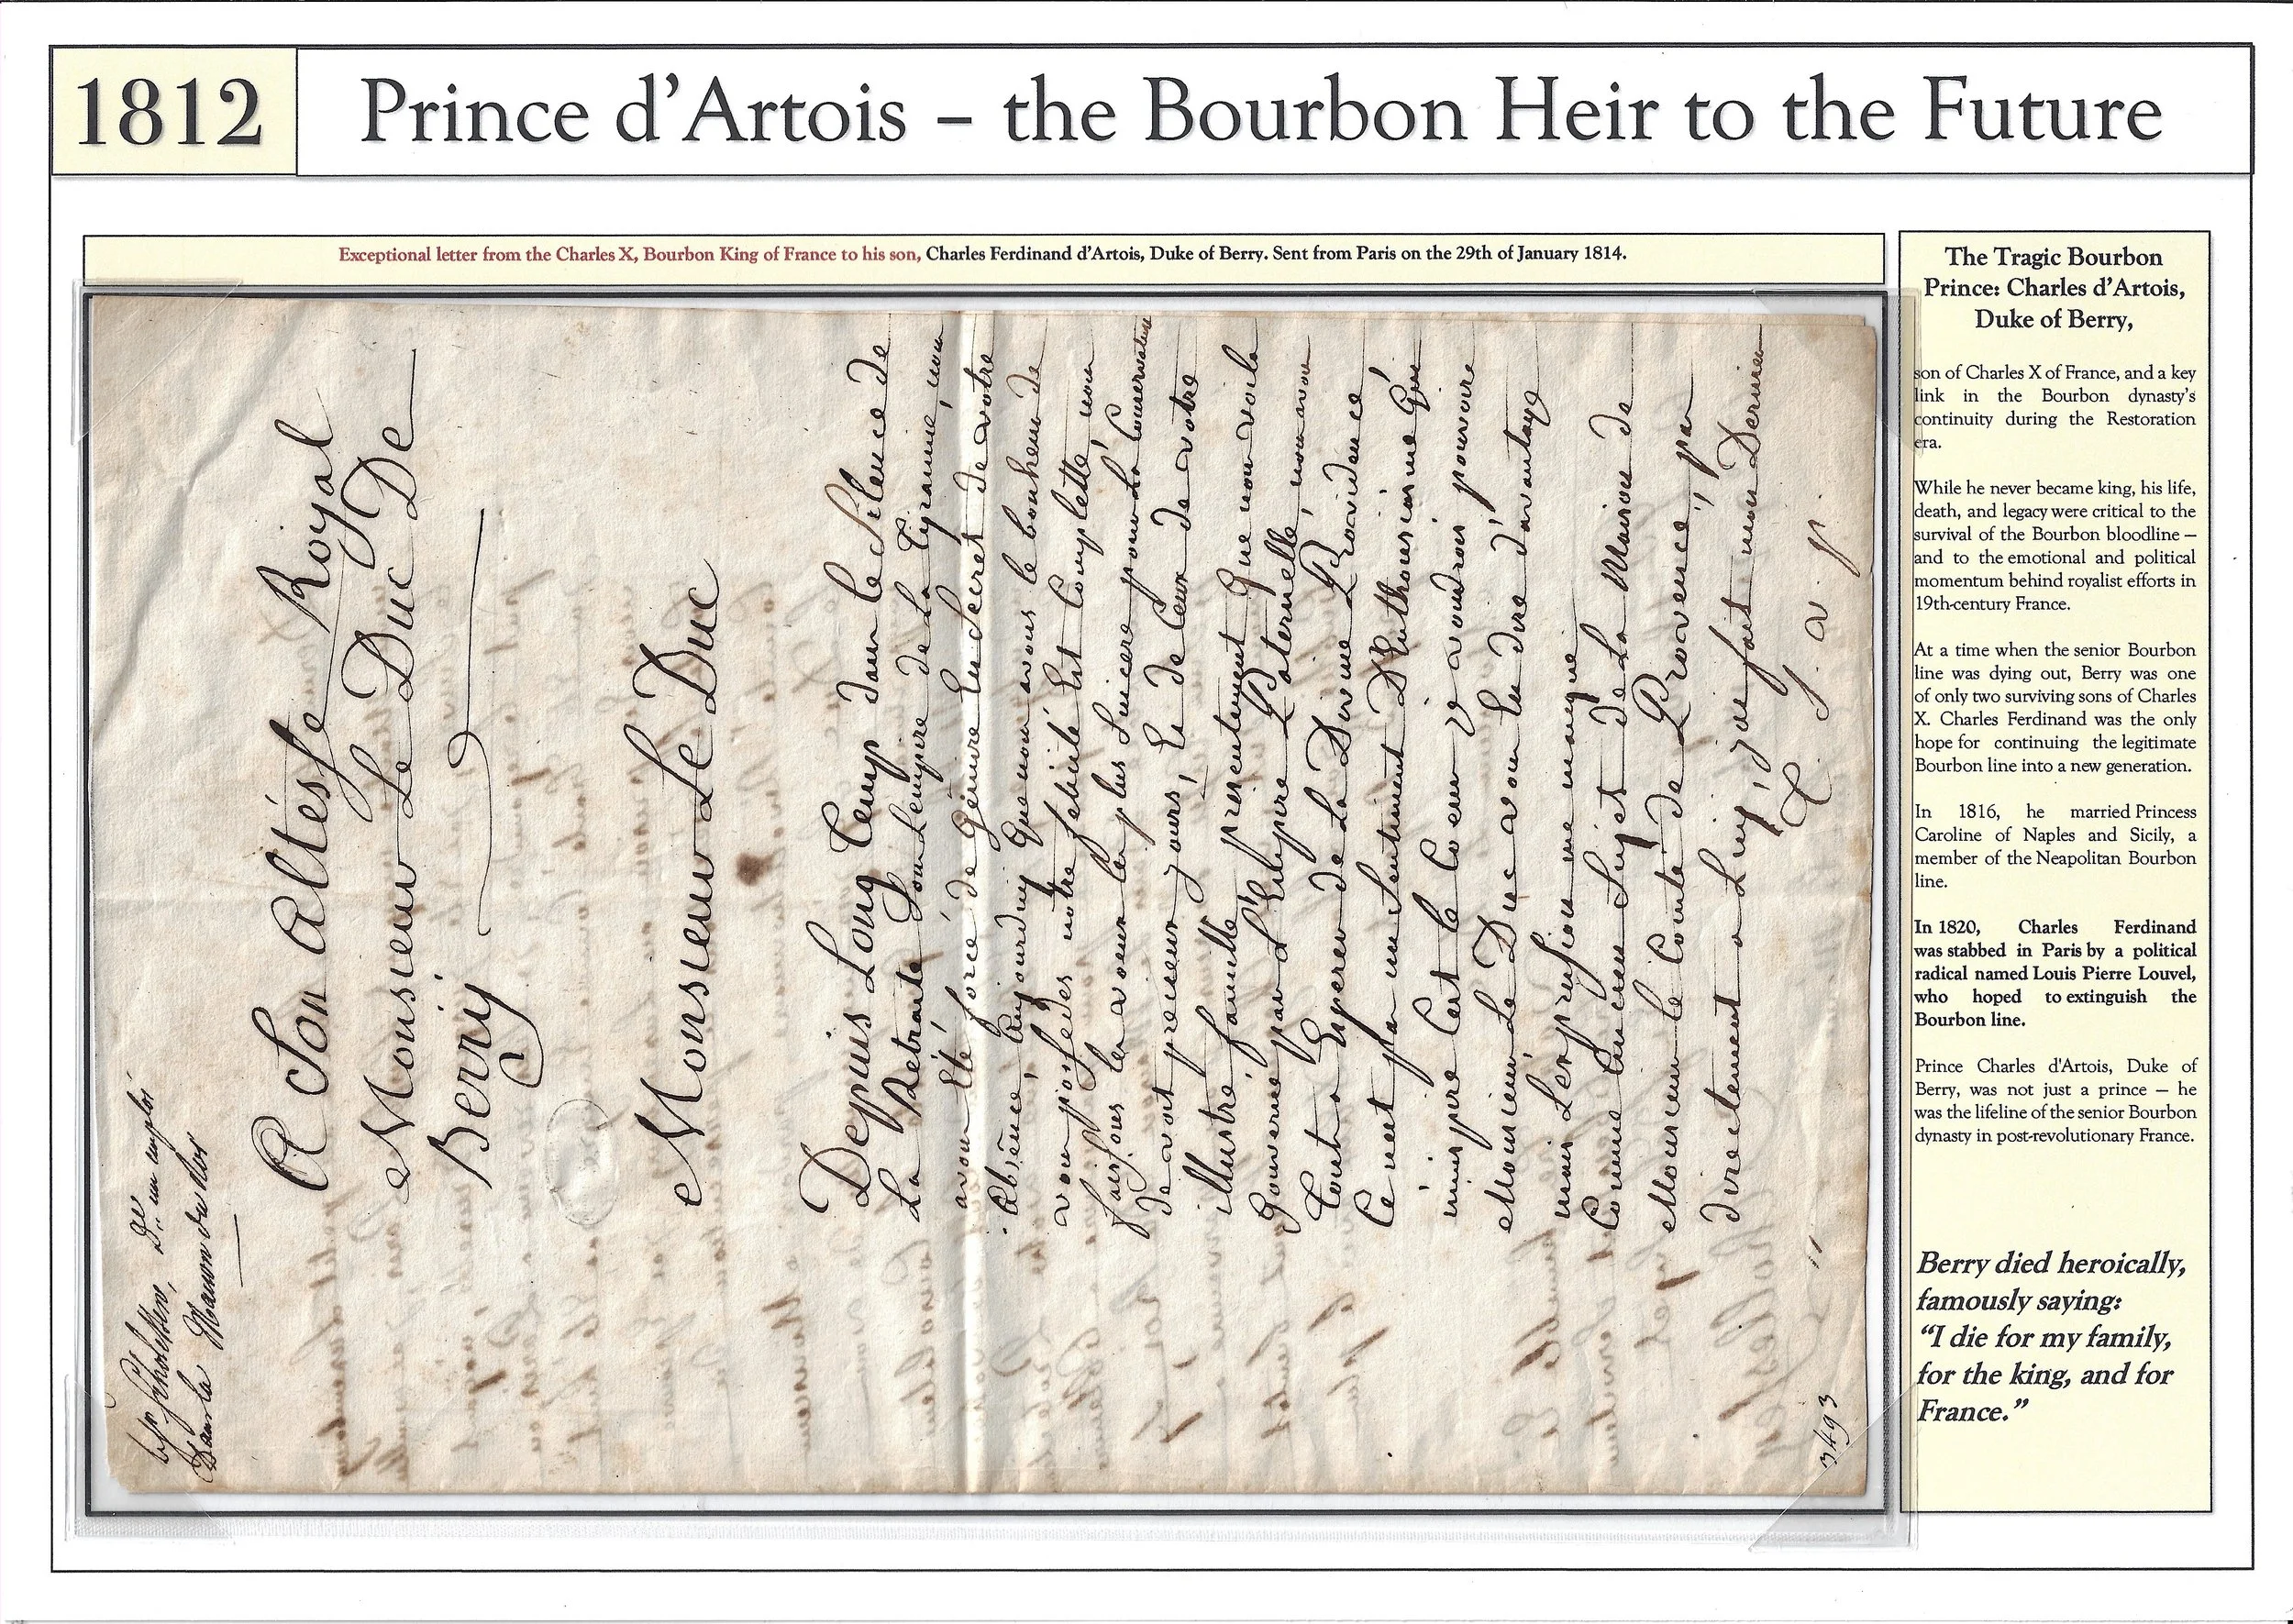 1812
Prince d'Artois – the Bourbon Heir to the Future
Exceptional letter from the Charles X, Bourbon King of France to his son, Charles Ferdinand d'Artois, Duke of Berry. Sent from Paris on the 29th of January 1814.
Dans la Maison du Roi
A Son Altesse Royal
Monsieur Le Duc De
Berry
Monsieur Le Duc
Depuis Long Temp dans le Silence de
La Retraite Sous L'empire de La Tyrannie, nous
avons Eté forcé de Gémire En Secret de votre
Absence, Aujourduy Que nous avons le bonheur de
vous posseder notre felicité Est Complette, nous
faisons les voeux les plus Sincere pour La Conservation
de vos precieux jours, Et de Ceux de votre
illustre famille, presentement Que nous voila
Gouverné par L'Empire Paternelle, nous avons
tout a Esperer de La Divine Providence
Ce n'est pas un Sentiment D'Enthousiasme Qui
m'inspire C'est le Coeur, je voudrois pouvoire
Monsieur Le Duc vous En dire davantage
mais L'expression me manque
Comme Ancien Sujet de La Maison de
Monsieur le Comte de Provence, pas
directement a Luy, jai fait mon Dernier
T. S. V. P.
3493
The Tragic Bourbon
Prince: Charles d'Artois,
Duke of Berry,
son of Charles X of France, and a key
link in the Bourbon dynasty's
continuity during the Restoration
era.
While he never became king, his life,
death, and legacy were critical to the
survival of the Bourbon bloodline —
and to the emotional and political
momentum behind royalist efforts in
19th-century France.
At a time when the senior Bourbon
line was dying out, Berry was one
of only two surviving sons of Charles
X. Charles Ferdinand was the only
hope for continuing the legitimate
Bourbon line into a new generation.
In 1816, he married Princess
Caroline of Naples and Sicily, a
member of the Neapolitan Bourbon
line.
In 1820, Charles Ferdinand
was stabbed in Paris by a political
radical named Louis Pierre Louvel,
who hoped to extinguish the
Bourbon line.
Prince Charles d'Artois, Duke of
Berry, was not just a prince — he
was the lifeline of the senior Bourbon
dynasty in post-revolutionary France.
Berry died heroically,
famously saying:
“I die for my family,
for the king, and for
France.”